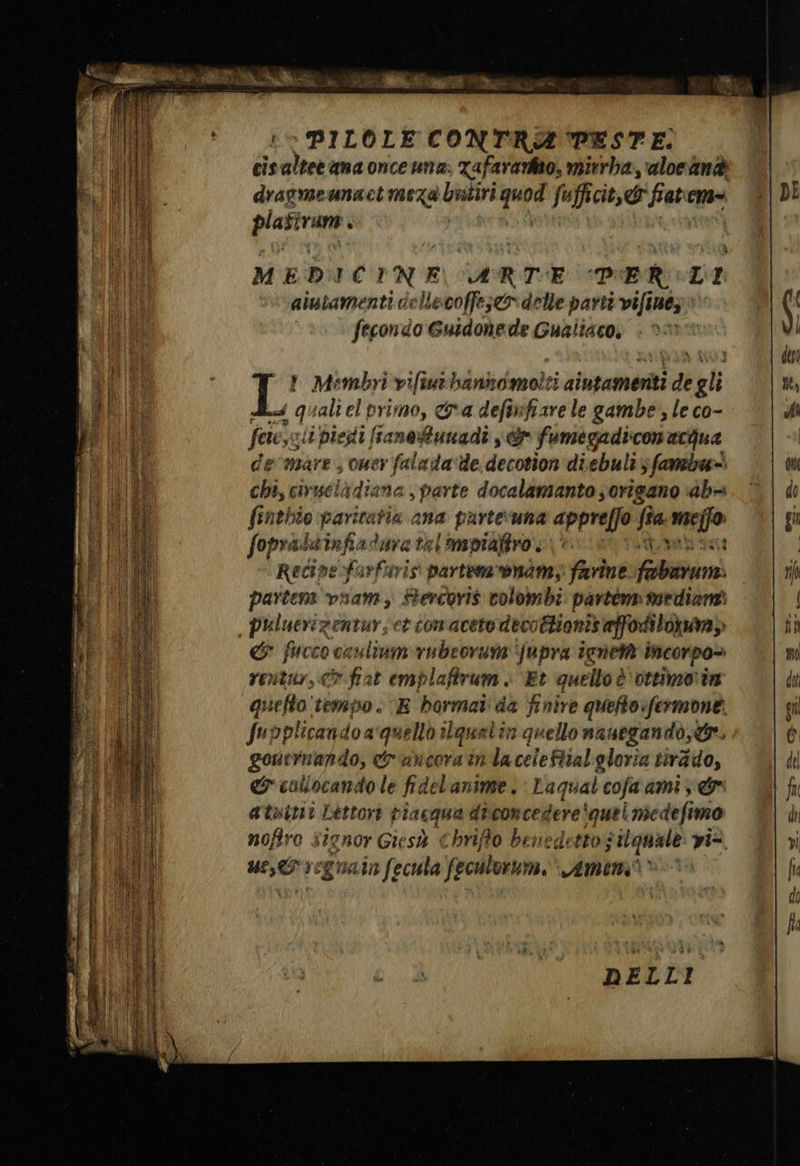 PILOLE CONTRA PESTE.
cis altee ana once una, zafaranno, mirrha, aloe ana
dragme una et meza butiri quod sufficit, & fiat em-
plastrum.
MEDICINE ARTE PER LI
aiutamenti delle cosse, & delle parti visine,
secondo Guidone de Gualiaco.
LI Membri visini hanno molti aiutamenti de gli
quali el primo, & a desinfiare le gambe, le co-
scie, gli piedi siano stuuadi, & fumegadi con acqua
de mare, ouer salada de decotion di ebuli, sambu-
chi, cirueladiana, parte do calamanto, origano ab-
sinthio paritaria ana parte una appresso sia messo
sopra la infiadura tal impiastro.
Recipe furfuris partem unam, farine fabarum
partem vnam, Stercoris colombi partem mediam
puluerizentur, et con aceto decoctionis affodilorum,
& succo caulium rubeorum supra ignem incorpo-
rentur, & fiat emplastrum. Et quello è ottimo in
questo tempo. E hormai da finire questo sermone,
supplicando a quello ilqual in quello nauegando, &
gouernando, & ancora in la celestial gloria tirãdo,
& collocando le fidel anime. Laqual cosa a mi, &
a tuitti Lettori piacqua di concedere quel medesimo
nostro Signor Giesù Christo benedetto, ilquale vi-
ue, & regna in secula seculorum. Amen.
DELLI